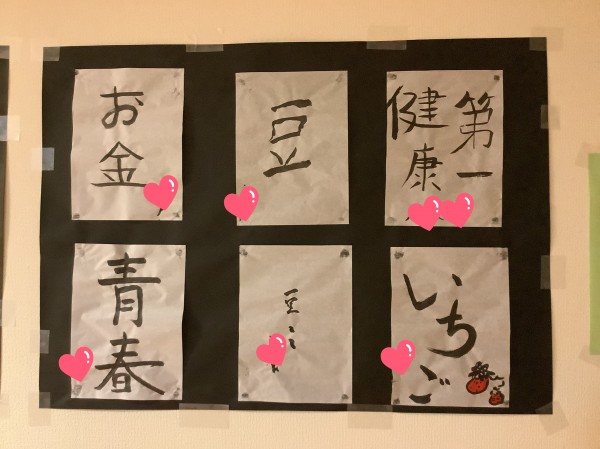 お金
豆
健康第一
青春
豆
いちご